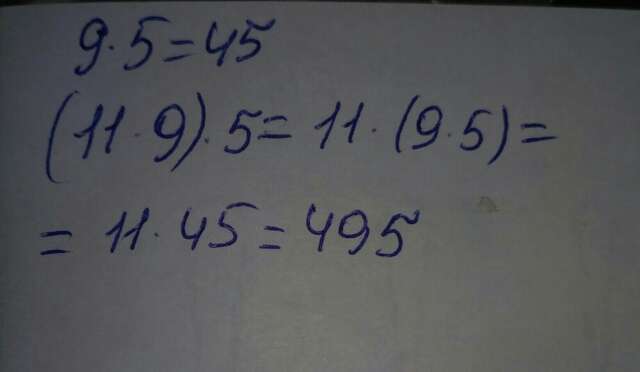 9·5=45
(11·9)·5=11·(9·5)=
=11·45=495